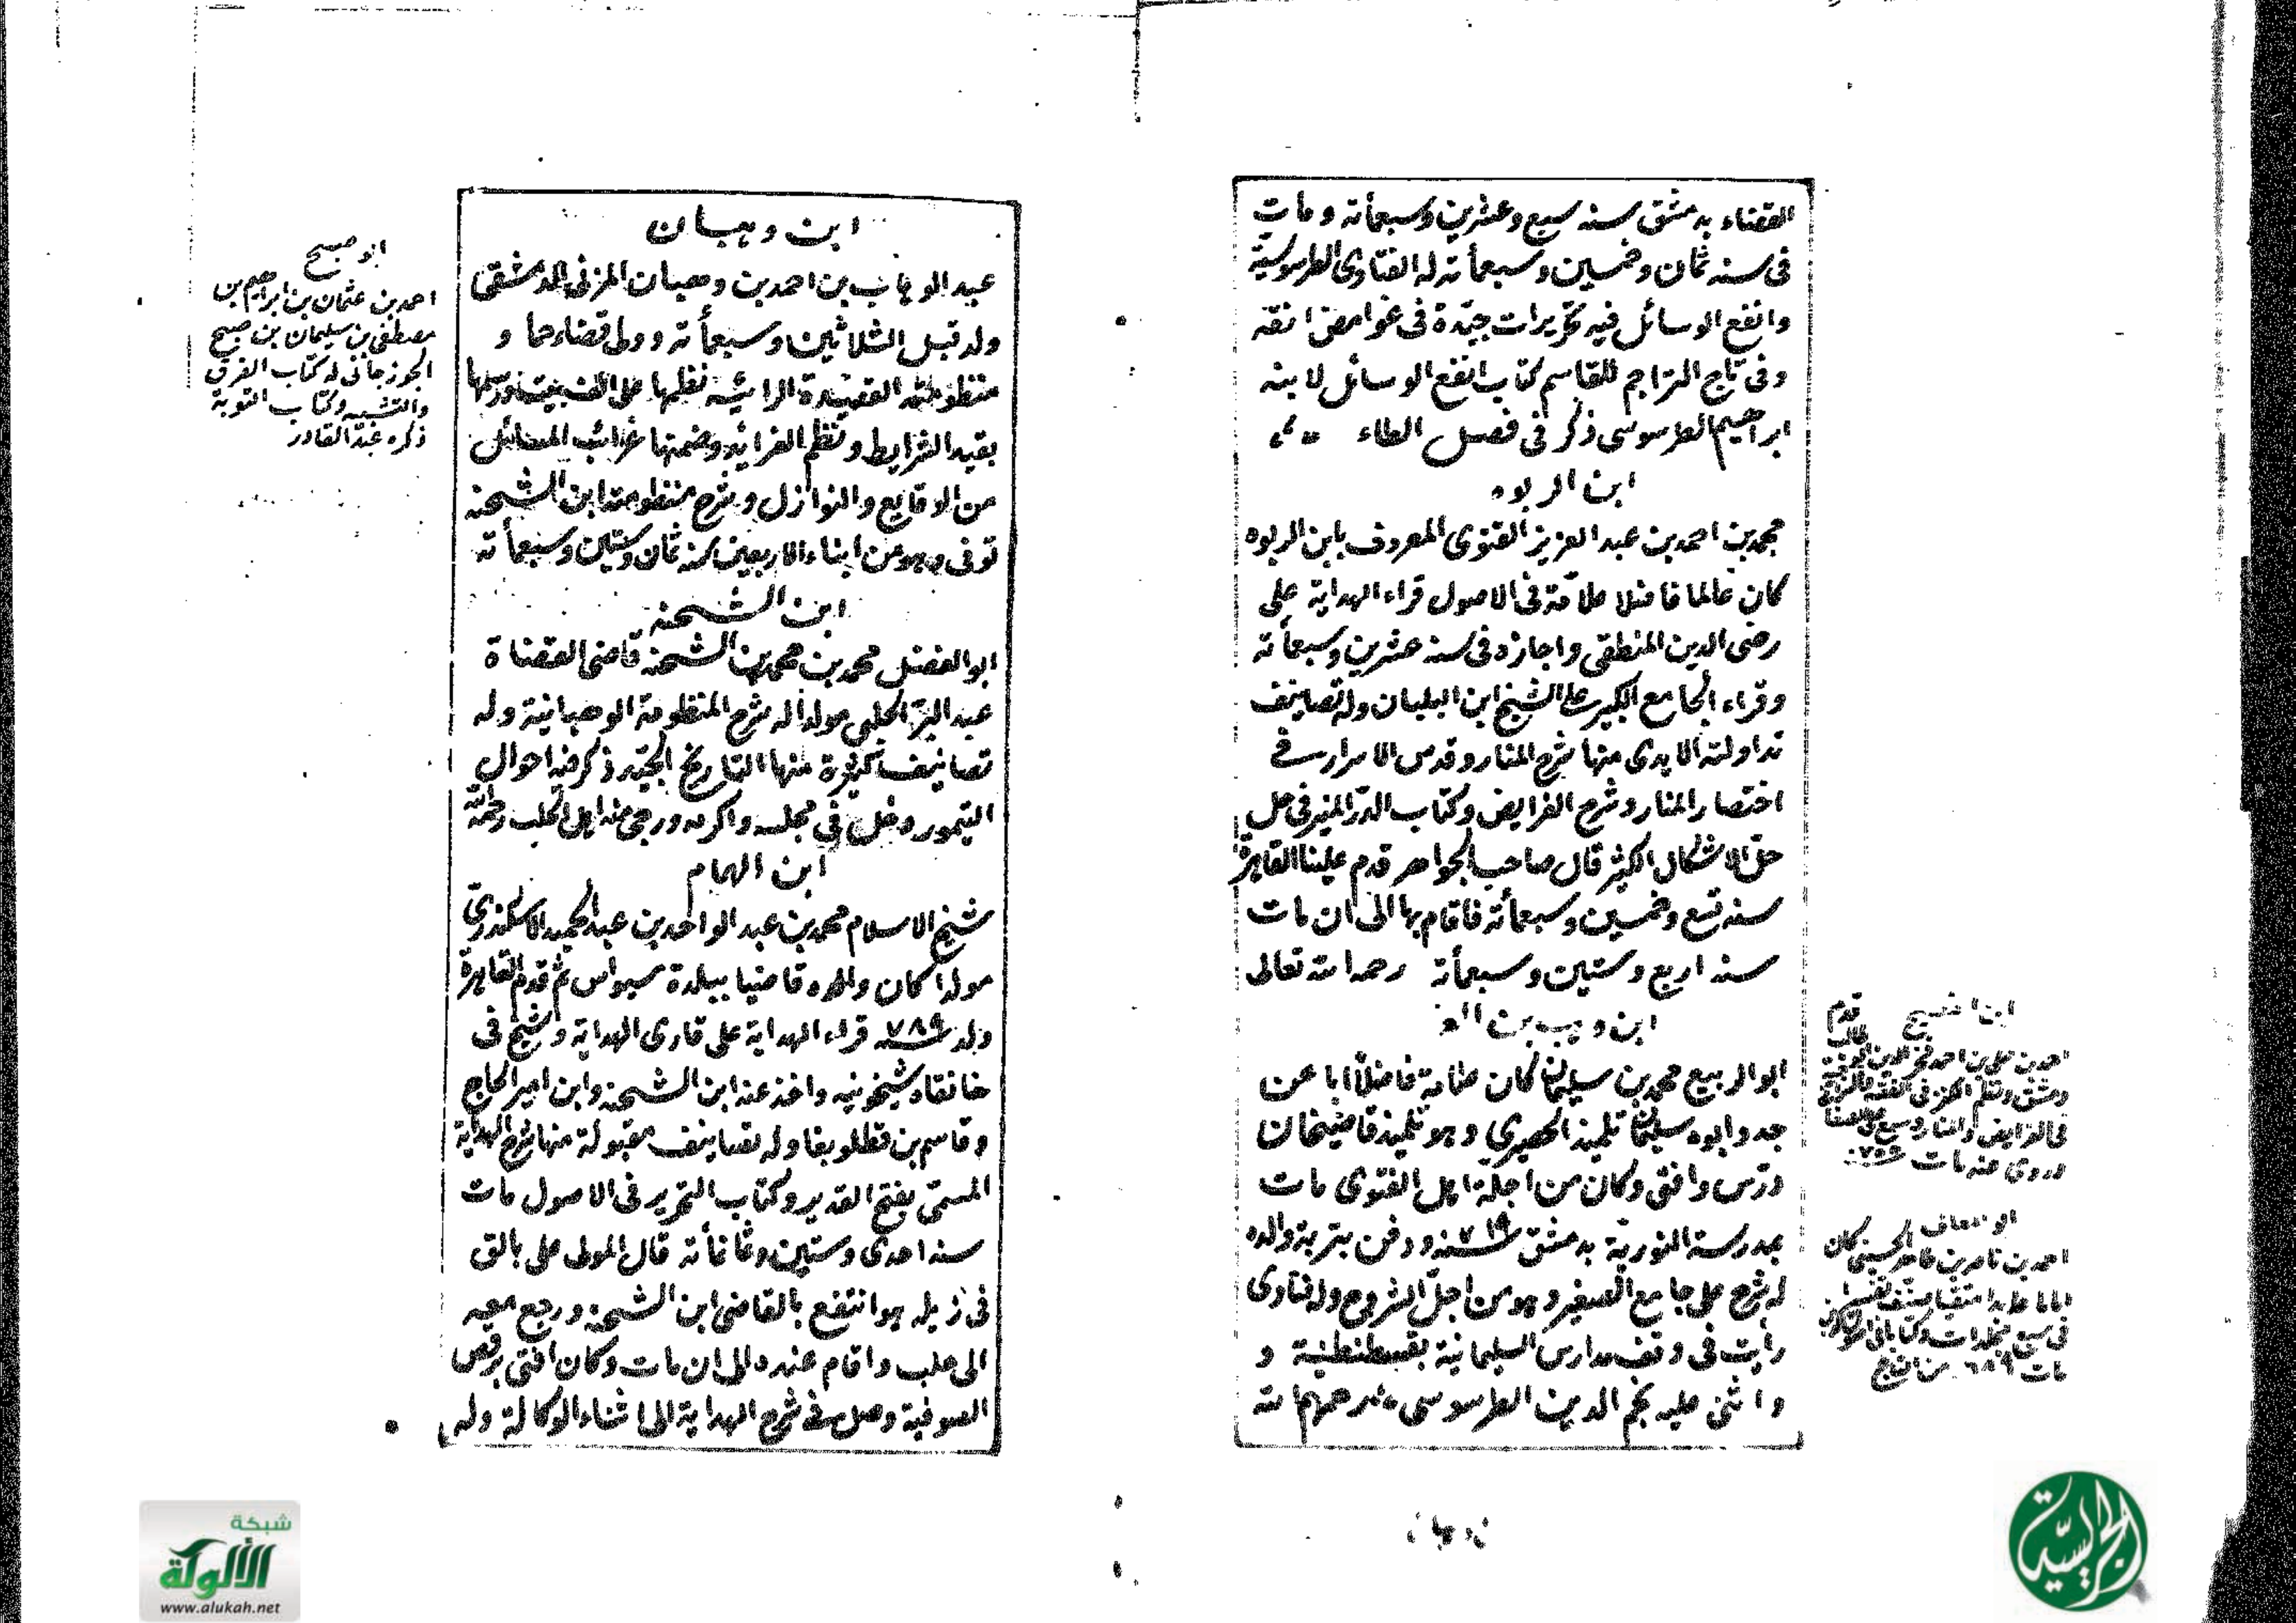 القضاء بدمشق سنه سبع وعشرين وسبعمأته ومات
فى سنه ثمان وخمسين وسبعمأته له الفتاوى الطرسوسية
وانفع الوسائل فيه تحريرات جيّدة فى غوامض انقه
وفى تاج التراجم للقاسم كتاب انفع الوسائل لابنه
ابراهيم الطرسوسى ذكر فى فصل الطاء
ابن الربوه
محمد بن احمد بن عبد العزيز القنوى المعروف بابن الربوه
كان عالما فاضلا علاّمة فى الاصول قراء الهداية على
رضى الدين المنطقى واجازه فى سنه عشرين وسبعمأته
وقراء الجامع الكبير على الشيخ ابن البلبان وله تصانيف
تداولته الايدى منها شرح المنار وقدس الاسرار فے
اختصار المنار وشرح الفرايض وكتاب الدرّ المنير فى حل
حلّ الاشكال الكثير قال صاحب الجواهر قدم علينا القاهرة
سنه تسع وخمسين وسبعمأته فاقام بها الى ان مات
سنه اربع وستين وسبعمأته رحمه الله تعالى
ابن وهيب بن العز
ابو الربيع محمد بن سليمان كان علامة فاضلاً ابا عن
جد وابوه سليمان تلميذ الحصيري وهو تلميذ قاضيخان
درّس وافتى وكان من اجلّة اهل الفتوى مات
بمدرسة النورية بدمشق سنه ٧١٩ ودفن بتربة والده
له شرح على جامع الصغير وهو من اجلّ الشروح وله فتاوى
رأيت فى وقف مدارس السليمانية بقسطنطنية و
واثنى عليه نجم الدين الطرسوسى رحمهما الله
ابن الفصيح
احمد بن على بن احمد فخر الدين الكوفى قدم
دمشق ونظم الكنز فى الفقه
وروى عنه مات
احمد بن ناصر بن طاهر الحسينى كان
اماما عابدا متقيا صنّف تفسيرا
فى سبع مجلدات وكتابا فى اصول الدين
مات ٦٨٩ من التاج
ابن وهبان
عبد الوهاب بن احمد بن وهبان المزنى الدمشقى
ولد قبل الثلاثين وسبعمأته وولى قضاء حما و
منظومته القصيدة الرائيه نظمها على الف بيت
بقيد الشرايط ونظم الفرائد وضمنها غرائب المسائل
من الوقايع والنوازل وشرح منظومته ابن الشحنه
توفى وهو من ابناء الاربعين سنه ثمان وستين وسبعمأته
ابن الشحنه
ابو الفضل محمد بن محمد بن الشحنه قاضى القضاة
عبد البرّ الحلبى مولدا له شرح المنظومة الوهبانية وله
تصانيف كثيرة منها التاريخ الجيّد ذكر فيه احوال
التيمور دخل فى مجلسه واكرمه ورجى منه اهل الحلب رحمه الله
ابن الهمام
شيخ الاسلام محمد بن عبد الواحد بن عبد الحميد الاسكندرىّ
مولدا كان والده قاضيا ببلدة سيواس ثم قدم القاهرة
ولد سنه ٧٨٩ قراء الهداية على قارى الهداية وشيخ فى
خانقاه شيخونيه واخذ عنه ابن الشحنه وابن امير الحاج
وقاسم بن قطلوبغا وله تصانيف مقبولة منها شرح الهداية
المسمّى بفتح القدير وكتاب التحرير فى الاصول مات
سنه احدى وستين وثمانمأته قال المولى على بالق
فى ذيله هو انتفع بالقاضى ابن الشحنه ورجع معه
الى حلب واقام عنده الى ان مات وكان افتى برقص
الصوفية وصل فى شرح الهداية الى اثناء الوكالة وله
ابو صبيح
احمد بن عثمان بن ابراهيم بن
مصطفى بن سليمان بن صبيح
الجوزجانى له كتاب الفرق
والتشبيه وكتاب التوبة
ذكره عبد القادر
شبكة
الألولة
www.alukah.net